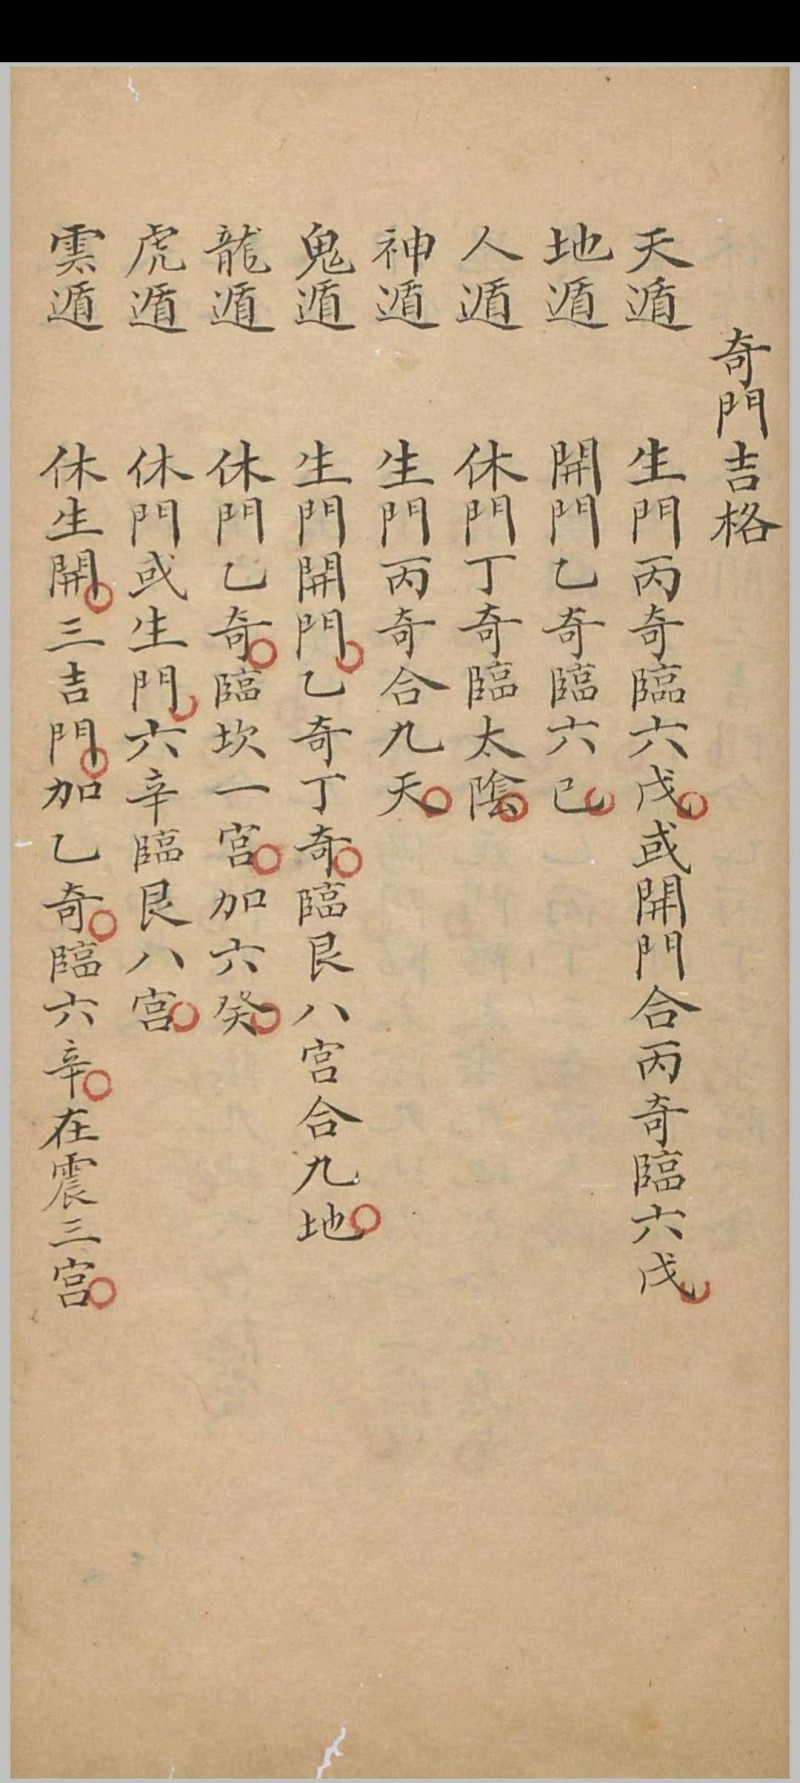 奇門吉格
天遁 生門丙奇臨六戊或開門合丙奇臨六戊
地遁 開門乙奇臨六己
人遁 休門丁奇臨太陰
神遁 生門丙奇合九天
鬼遁 生門開門乙奇丁奇臨艮八宮合九地
龍遁 休門乙奇臨坎一宮加六癸
虎遁 休門或生門六辛臨艮八宮
雲遁 休生開三吉門加乙奇臨六辛在震三宮